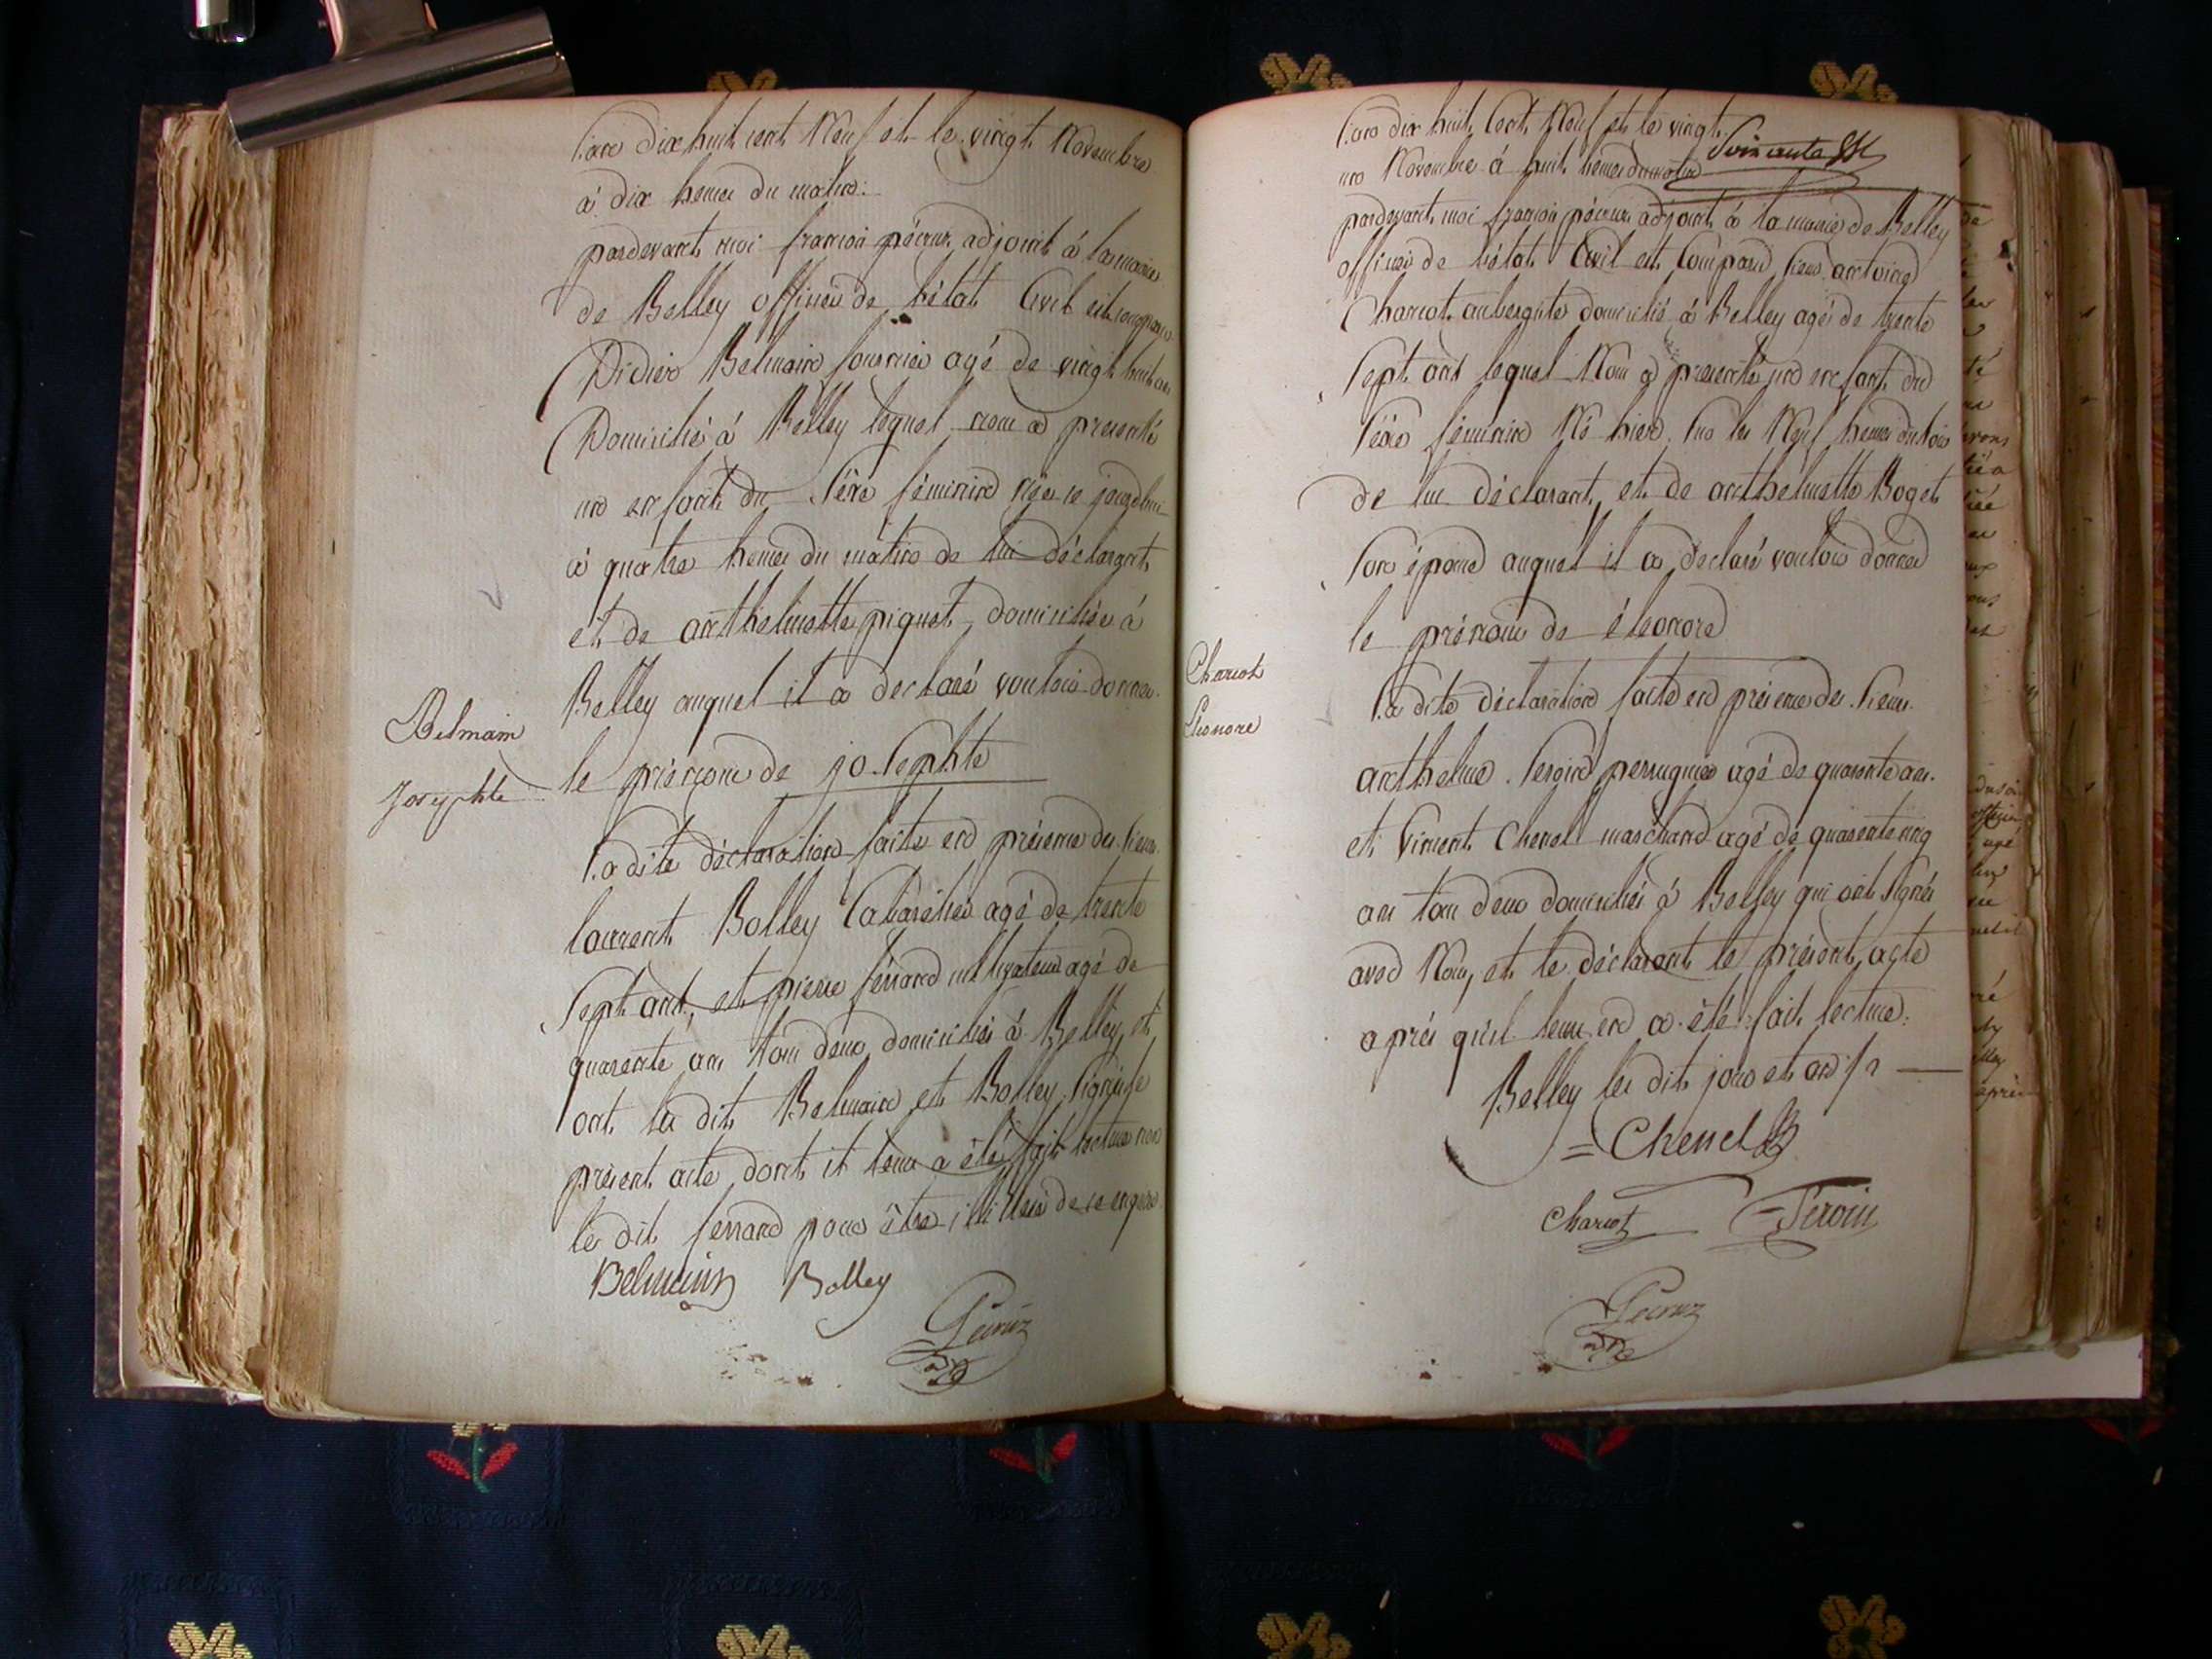 L'an dix huit cent Neuf et le vingt Novembre
à dix heures du matin.
pardevant moi françois pécruz adjoint à la mairie
de Belley officier de l'état Civil est comparu
Didier Belmain fournier agé de vingt huit ans
Domicilié à Belley lequel nous a presenté
un enfant du Séxe féminin née ce jourd'hui
à quatre heures du matin de lui déclarant
et de anthelmette piquet domiciliée à
Belley auquel il a declaré vouloir donner
le prénom de josephte
Belmain
Josephte
La dite déclaration faite en présence des sieurs
laurent Bolley Cabaretier agé de trente
Sept ans, et pierre ferrand cultivateur agé de
quarente ans tous deux domiciliés à Belley, et
ont les dits Belmain et Bolley Signé le
présent acte dont il leur a été fait lecture non
le dit ferrand pour être illiteré de ce enquis
Belmain Bolley
Pecruz
L'an dix huit Cent Neuf et le vingt
un Novembre à huit heures du matin
Soixante
pardevant moi françois pécruz adjoint à la mairie de Belley
officier de l'état Civil est Comparu sieur antoine
Charcot aubergiste domicilié à Belley agé de trente
Sept ans lequel Nous a presenté un enfant du
Séxe féminin Né hier sur les Neuf heures du soir
de lui déclarant et de anthelmette Boget
Son épouse auquel il a declaré vouloir donner
le prénom de éleonore
Charcot
Eleonore
La dite déclaration faite en présence des Sieurs
anthelme Seroin perruquier agé de quarante ans
et Vincent Chenel marchand agé de quarente cinq
ans tous deux domiciliés à Belley qui ont Signés
avec Nous, et le déclarant le présent acte
après qu'il leur en a été fait lecture.
Belley les dits jour et an
Chenel
Charcot Seroin
Pecruz